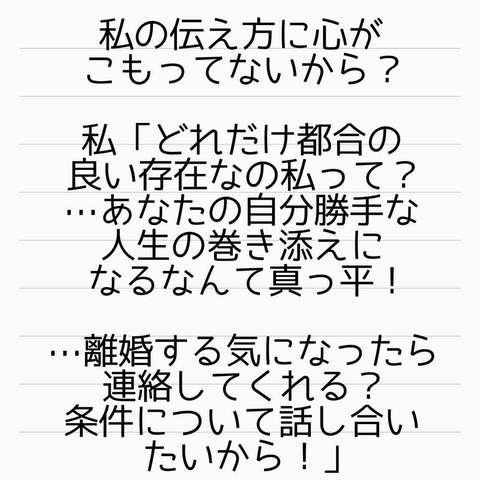 私の伝え方に心が
こもってないから？
私「どれだけ都合の
良い存在なの私って？
…あなたの自分勝手な
人生の巻き添えに
なるなんて真っ平！
…離婚する気になったら
連絡してくれる？
条件について話し合い
たいから！」